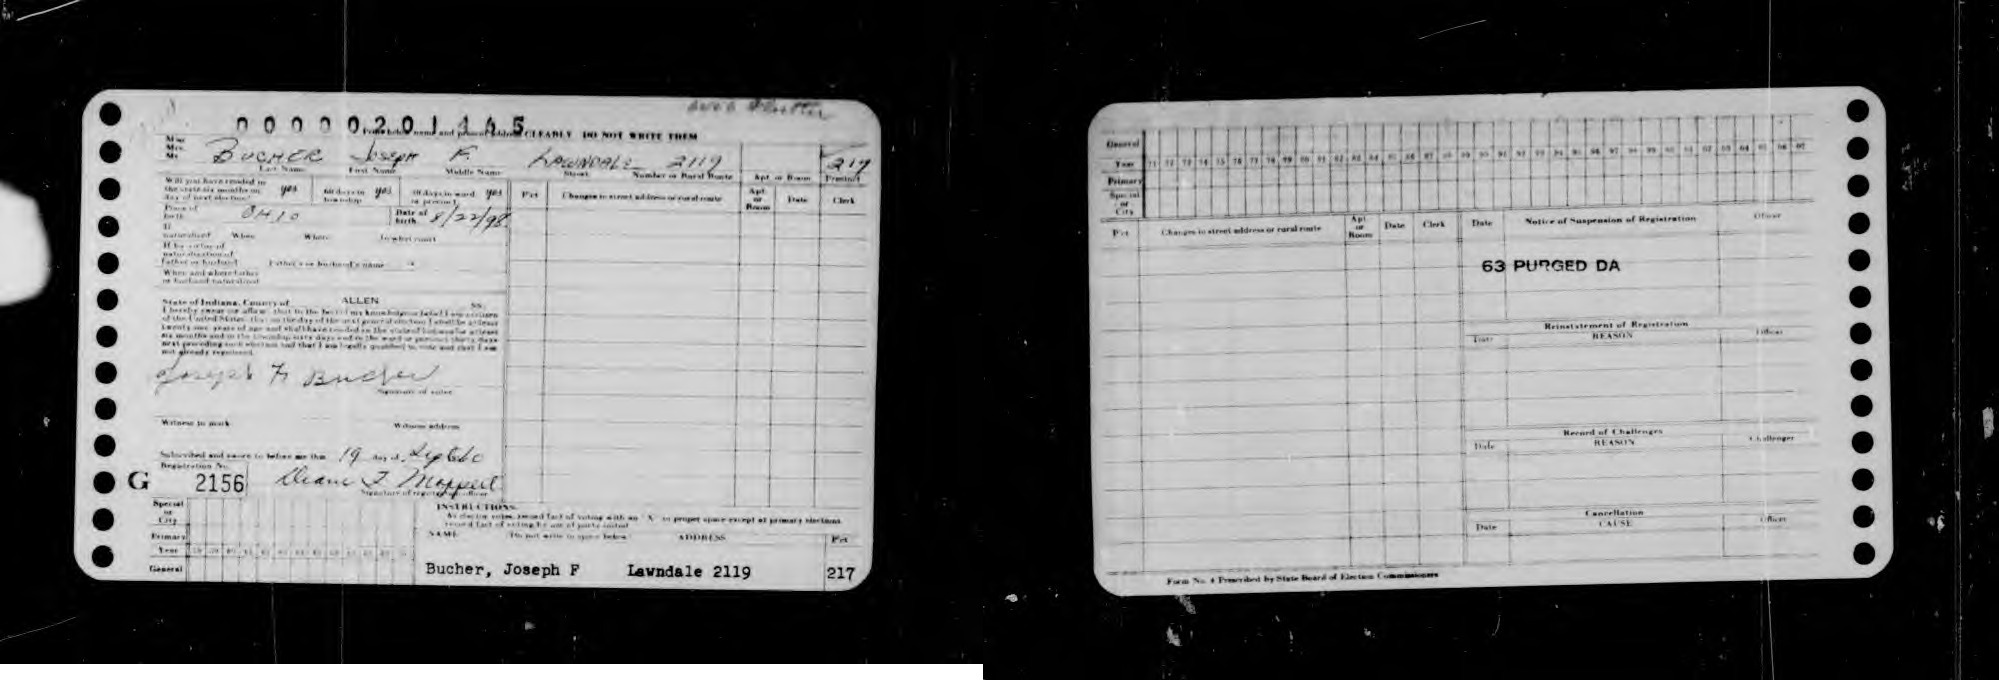 00000201465
Print below name and present address CLEARLY DO NOT WRITE THEM
Miss
Mrs.
Mr.
BUCHER Joseph F. LAWNDALE 2119 217
Last Name First Name Middle Name Street Number or Rural Route Apt. or Room Precinct
Will you have resided in the state six months on day of next election? yes 60 days in township yes 30 days in ward or precinct yes
Place of birth OHIO Date of birth 8/22/98
If naturalized When Where In what court
If by virtue of naturalization of father or husband Father's or husband's name
When and where father or husband naturalized
Pct Changes to street address or rural route Apt. or Room Date Clerk
State of Indiana, County of ALLEN SS:
I hereby swear (or affirm) that to the best of my knowledge and belief I am a citizen
of the United States, that on the day of the next general election I shall be at least
twenty-one years of age and shall have resided in the state of Indiana for at least
six months and in the township sixty days and in the ward or precinct thirty days
next preceding such election and that I am legally qualified to vote and that I am
not already registered.
Joseph F. Bucher
Signature of voter
Witness to mark Witness address
Subscribed and sworn to before me this 19 day of
Registration No.
G 2156
Signature of registration officer
INSTRUCTIONS
As elector votes, record fact of voting with an "X" in proper space except at primary elections
record fact of voting by use of party initial
Special or City
Primary
Year
General
NAME (Do not write in space below) ADDRESS Pct
Bucher, Joseph F Lawndale 2119 217
General
Year 71 72 73 74 75 76 77 78 79 80 81 82 83 84 85 86 87 88 89 90 91 92 93 94 95 96 97 98 99 00 01 02 03 04 05 06 07
Primary
Special or City
Pct Changes to street address or rural route Apt. or Room Date Clerk
Date Notice of Suspension of Registration Officer
63 PURGED DA
Reinstatement of Registration
Date REASON Officer
Record of Challenges
Date REASON Challenger
Cancellation
Date CAUSE Officer
Form No. 4 Prescribed by State Board of Election Commissioners